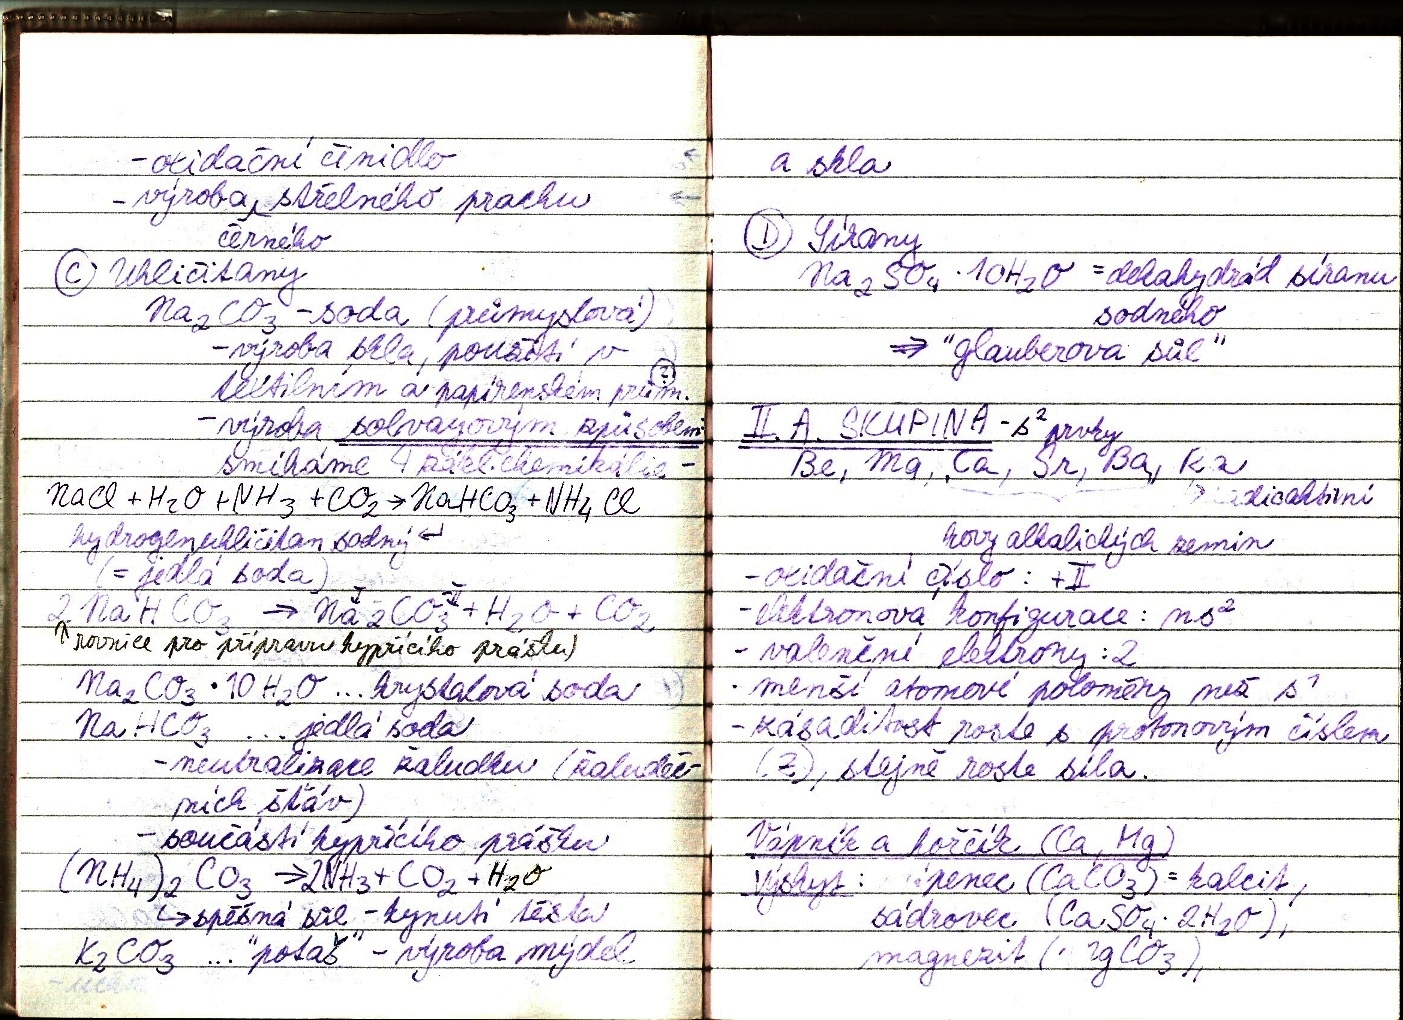 - oxidační činidlo
- výroba střelného prachu
černého
Ⓒ Uhličitany
Na₂CO₃ - soda (průmyslová)
- výroba skla, použití v
textilním a papírenském prům.
- výroba solvayovým způsobem
smícháme 4 zákl. chemikálie -
NaCl + H₂O + NH₃ + CO₂ → NaHCO₃ + NH₄Cl
hydrogenuhličitan sodný ↵
(= jedlá soda)
2 NaHCO₃ → Naᴵ₂CO₃⁻ᴵᴵ + H₂O + CO₂
↑ rovnice pro přípravu kypřícího prášku)
Na₂CO₃ · 10H₂O ... krystalová soda
NaHCO₃ ... jedlá soda
- neutralizace žaludku (žaludeč-
ních šťáv)
- součástí kypřícího prášku
(NH₄)₂CO₃ → 2NH₃ + CO₂ + H₂O
↳ spěšná sůl - kynutí těsta
K₂CO₃ ... "potaš" - výroba mýdel
a skla
Ⓓ Sírany
Na₂SO₄ · 10H₂O = dekahydrád síranu
sodného
⇒ "glauberova sůl"
II. A. SKUPINA - s² prvky
Be, Mg, Ca, Sr, Ba, Ra
radioaktivní
kovy alkalických zemin
- oxidační číslo : +II
- elektronová konfigurace : ns²
- valenční elektrony : 2
- menší atomové poloměry než s¹
- zásaditost roste s protonovým číslem
(Z), stejně roste síla.
Vápník a hořčík (Ca, Mg)
Výskyt : vápenec (CaCO₃) = kalcit,
sádrovec (CaSO₄ · 2H₂O),
magnezit (MgCO₃),